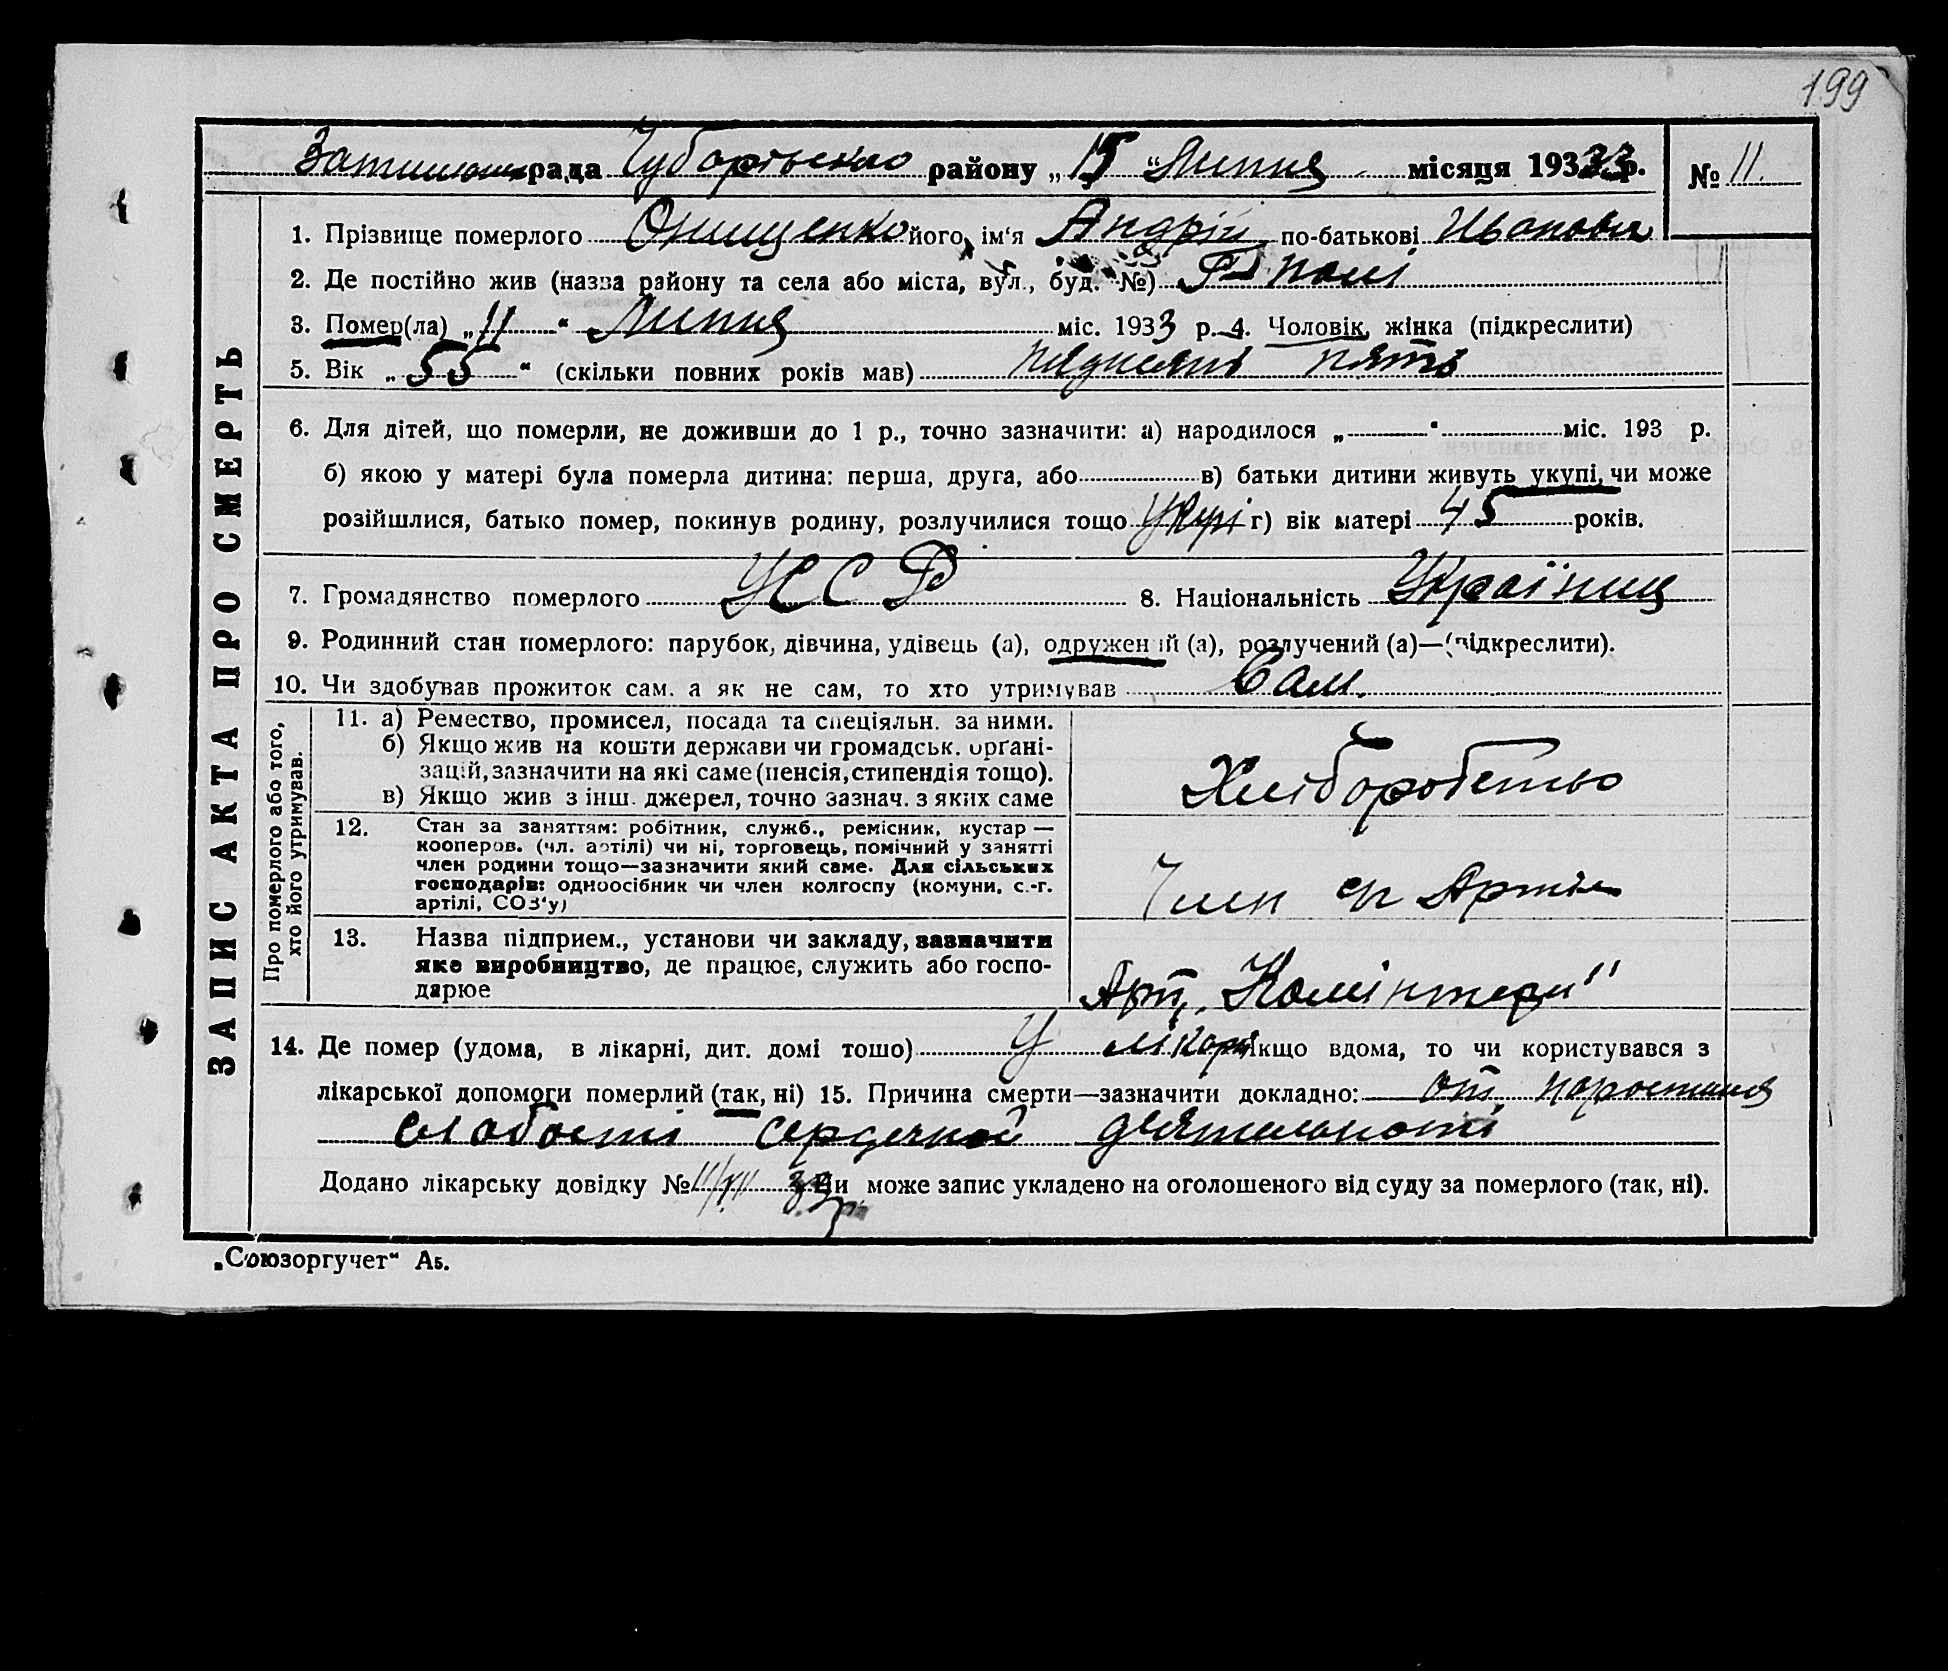 199
Затишанська рада Чубарівського району „15“ Липня місяця 1933 р. № 11.
ЗАПИС АКТА ПРО СМЕРТЬ
1. Прізвище померлого Онищенко його ім'я Андрій по-батькові Иванович
2. Де постійно жив (назва району та села або міста, вул., буд. №) Полі
3. Помер(ла) „11“ Липня міс. 1933 р. 4. Чоловік, жінка (підкреслити)
5. Вік „55“ (скільки повних років мав) пять
6. Для дітей, що померли, не доживши до 1 р., точно зазначити: а) народилося „ “ міс. 193 р.
б) якою у матері була померла дитина: перша, друга, або в) батьки дитини живуть укупі, чи може
розійшлися, батько помер, покинув родину, розлучилися тощо укупі г) вік матері 45 років.
7. Громадянство померлого УССР 8. Національність Україниц
9. Родинний стан померлого: парубок, дівчина, удівець (а), одружений (а), розлучений (а)—(підкреслити).
10. Чи здобував прожиток сам. а як не сам, то хто утримував Сам.
Про померлого або того, хто його утримував.
11. а) Ремество, промисел, посада та спеціяльн. за ними.
б) Якщо жив на кошти держави чи громадськ. орґані-
зацій, зазначити на які саме (пенсія, стипендія тощо).
в) Якщо жив з інш. джерел, точно зазнач. з яких саме
Хліборобство
12. Стан за заняттям: робітник, служб., ремісник, кустар —
кооперов. (чл. артілі) чи ні, торговець, помічний у занятті
член родини тощо—зазначити який саме. Для сільських
господарів: одноосібник чи член колгоспу (комуни, с.-г.
артілі, СОЗ'у)
Член Артіли
13. Назва підприєм., установи чи закладу, зазначити
яке виробництво, де працює, служить або госпо-
дарює
Арт. „Комінтерн“
14. Де помер (удома, в лікарні, дит. домі тошо) У лікарні Якщо вдома, то чи користувався з
лікарської допомоги померлий (так, ні) 15. Причина смерти—зазначити докладно: от
слабости сердечной деятельности
Додано лікарську довідку № 11/VII 33 Чи може запис укладено на оголошеного від суду за померлого (так, ні).
„Союзоргучет“ А5.